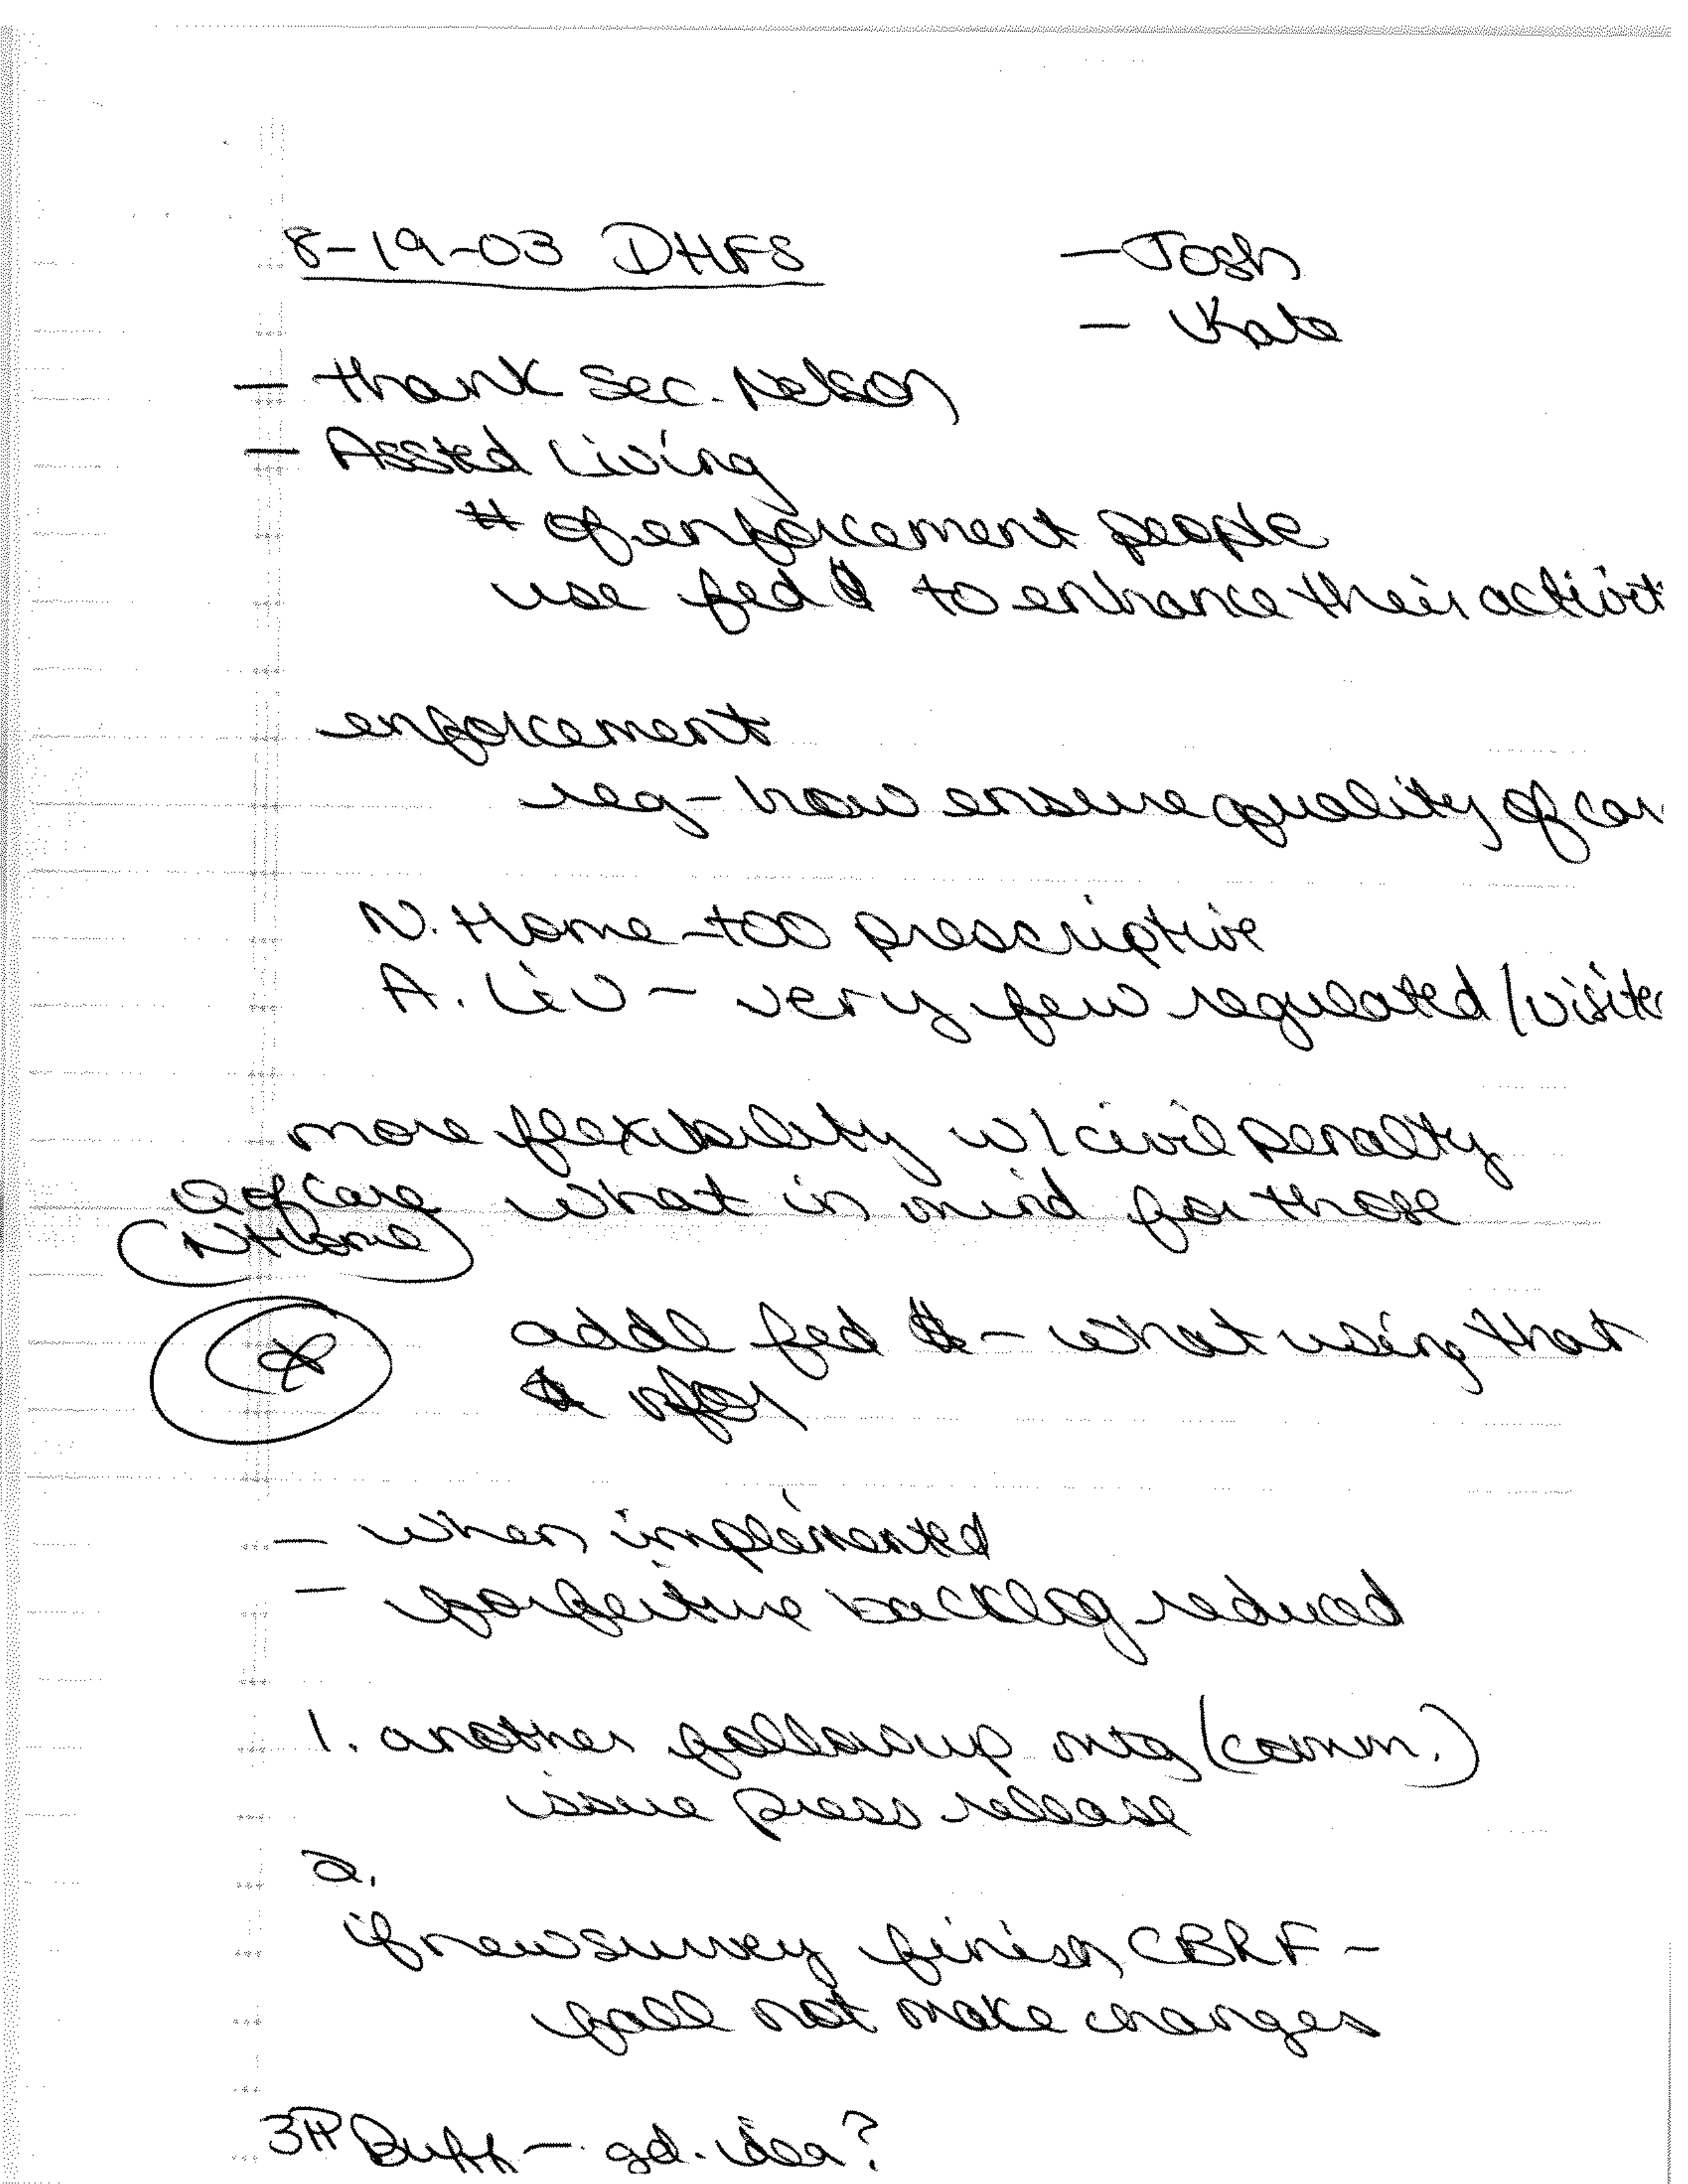 8-19-03 DHFS
- Josh
- Kate
- thank Sec. Nelson
- Assted Living
# of enforcement people
use fed $ to enhance their activit
enforcement
reg - how ensure quality of car
N. Home - too prescriptive
A. Liv - very few regulated / visited
more flexibility w/ civil penalty
Q of Care what in mind for those
(N Home)
addl fed $ - what using that
$ for
- when implemented
- forfeiture backlog reduced
1. another followup mtg (comm.)
issue press release
2.
if new survey finish CBRF -
fall not make changes
Buff - gd. idea?